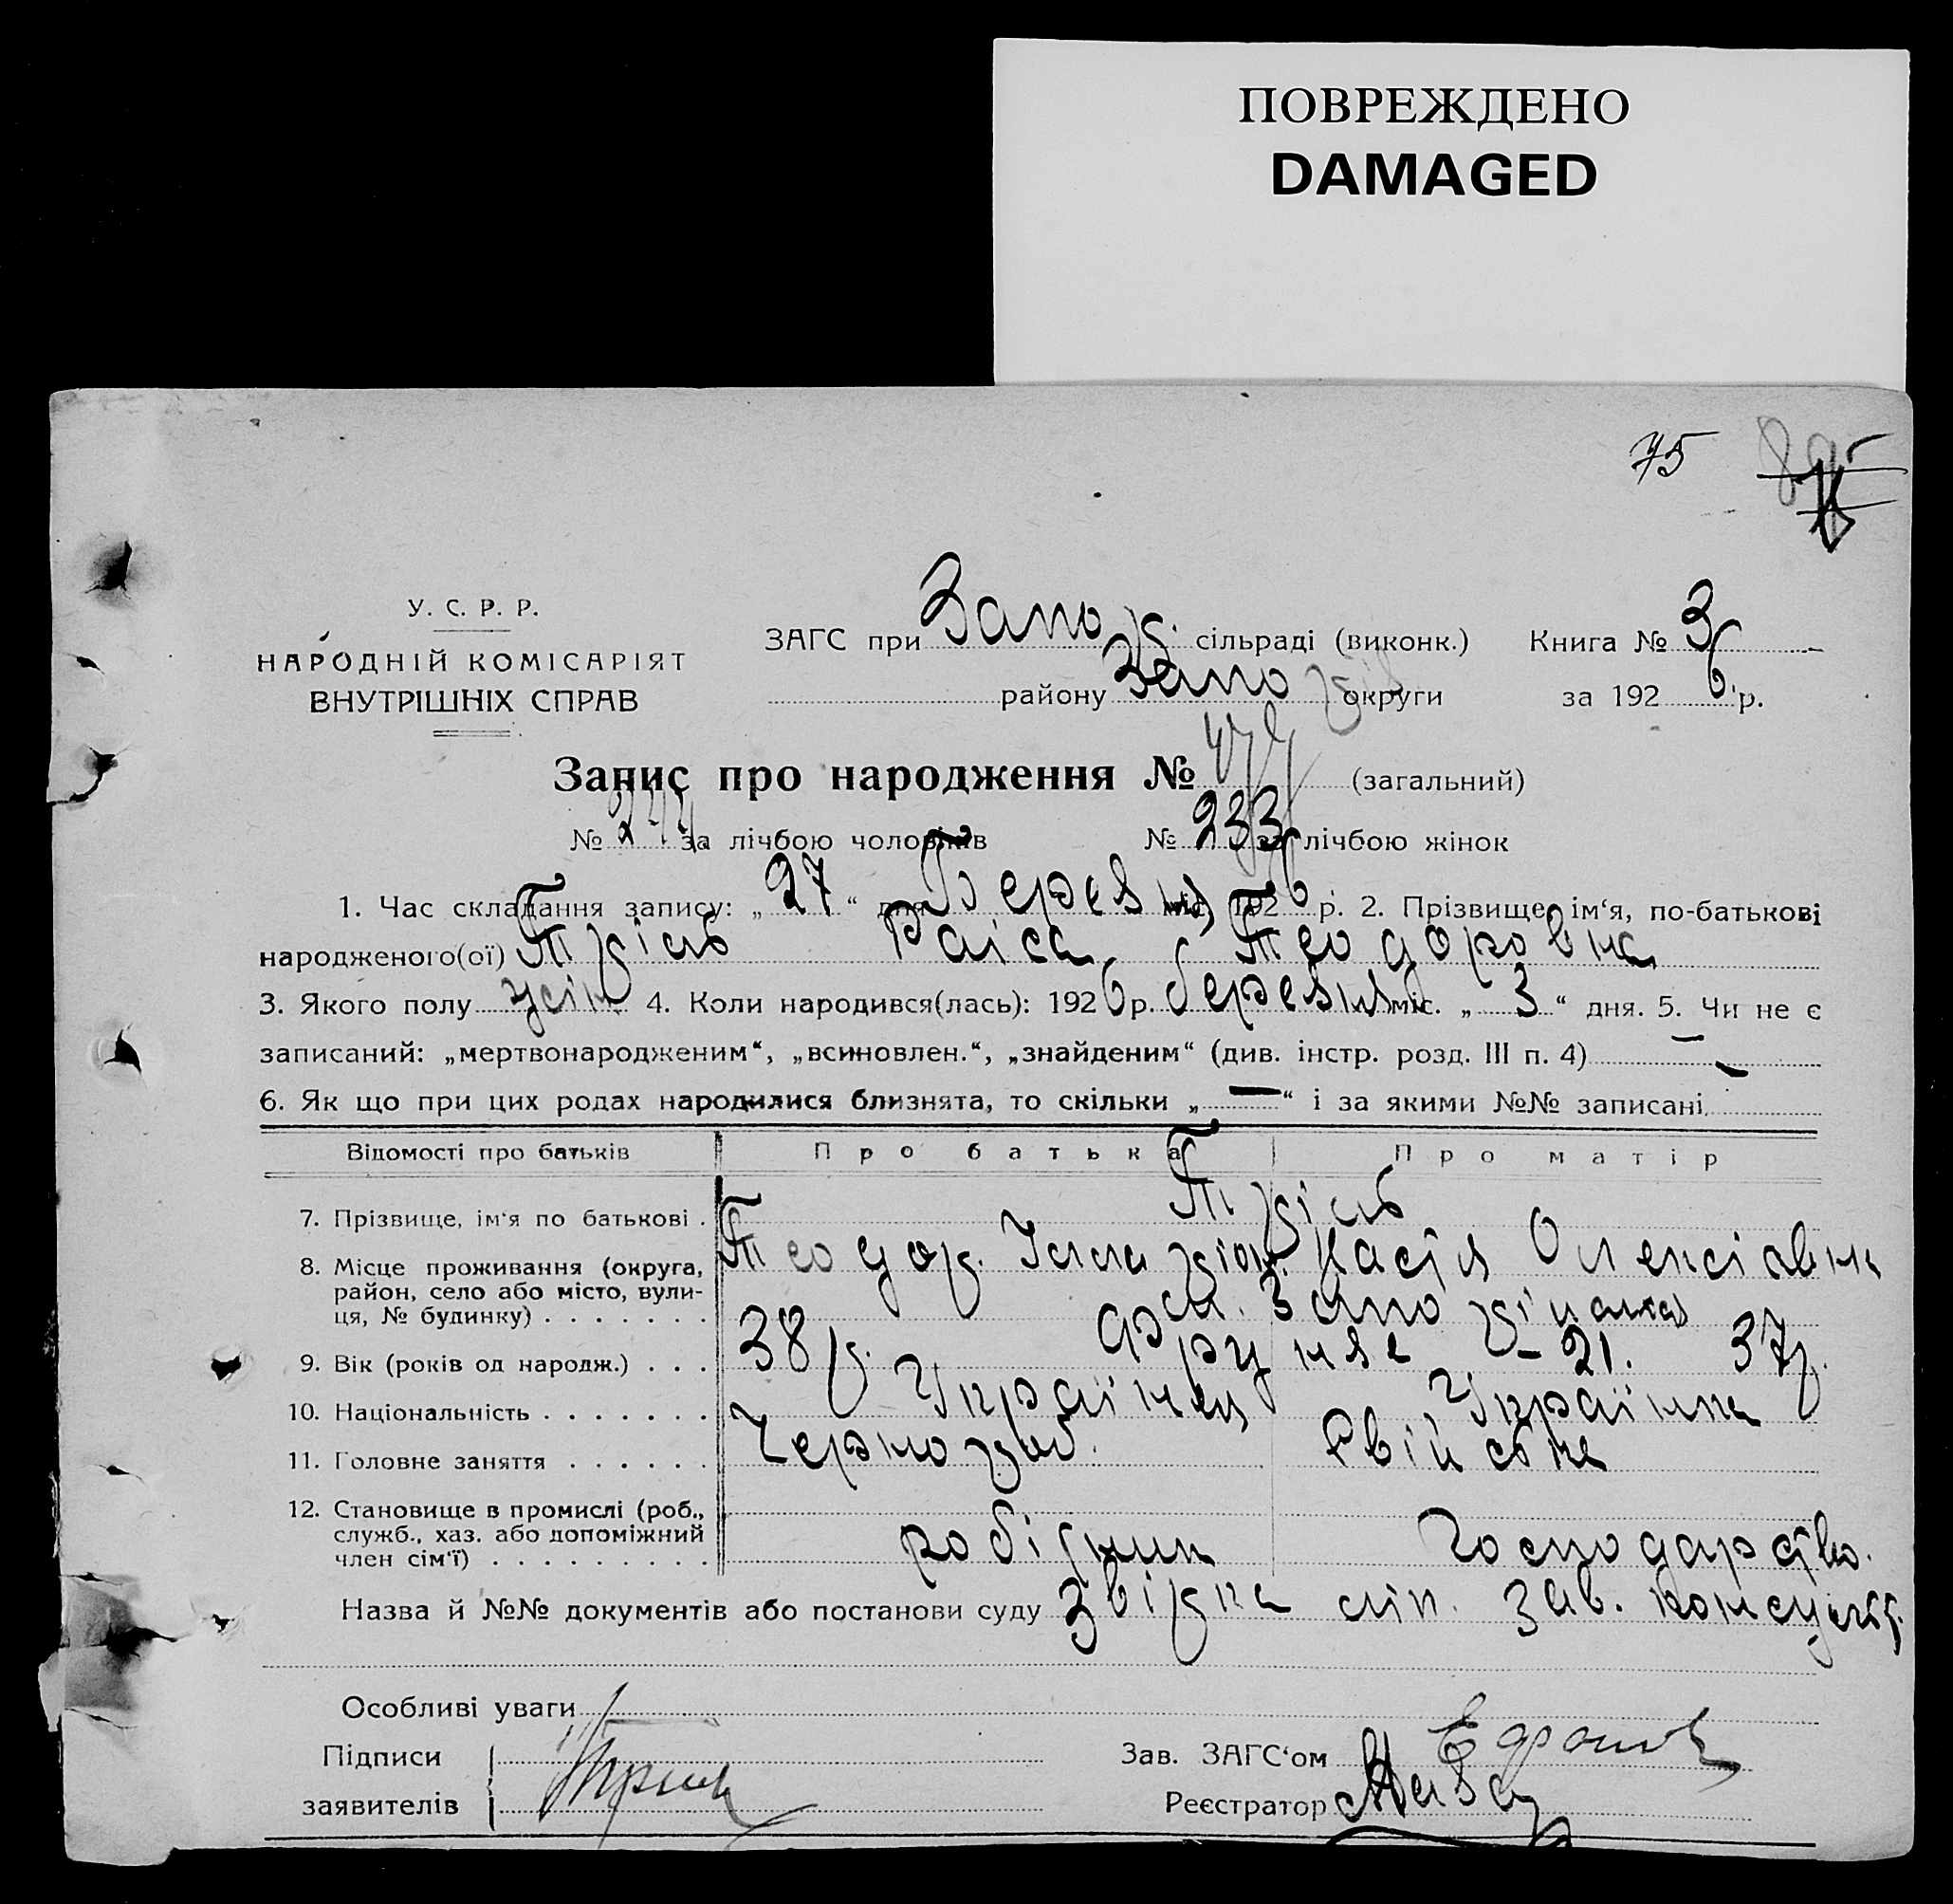 ПОВРЕЖДЕНО
DAMAGED
75
У. С. Р. Р.
НАРОДНІЙ КОМІСАРІЯТ
ВНУТРІШНІХ СПРАВ
ЗАГС при Запор. сільраді (виконк.) Книга № 3
району Запоріз округи за 1926 р.
Запис про народження № 477 (загальний)
№ 244 за лічбою чоловіків № 233 за лічбою жінок
1. Час складання запису: „27“ дня Березня міс. 1926 р. 2. Прізвище, ім‘я, по-батькові
народженого(ої) Тріль Раіса Теодоровна
3. Якого полу жін 4. Коли народився(лась): 1926 р. березня міс. „3“ дня. 5. Чи не є
записаний: „мертвонародженим“, „всиновлен.“, „знайденим“ (див. інстр. розд. III п. 4) —
6. Як що при цих родах народилися близнята, то скільки „—“ і за якими №№ записані
Відомості про батьків Про батька Про матір
7. Прізвище, ім‘я по батькові . Тріль
Теодор. Ілларіон. Настя Олексіовна
8. Місце проживання (округа, район, село або місто, вулиця, № будинку) . . . . . . . м. Запоріжжа
Фрунзе – 21.
9. Вік (років од народж.) . . . 38 р. 37 р.
10. Національність . . . . . . . Українец Українка
11. Головне заняття . . . . . . Чернороб. Свійське
12. Становище в промислі (роб., служб., хаз. або допоміжний член сім‘ї) . . . . . . . . . робітник Господарство.
Назва й №№ документів або постанови суду Звідка лік. зав. консульт.
Особливі уваги
Підписи
заявителів
Зав. ЗАГС‘ом
Реєстратор